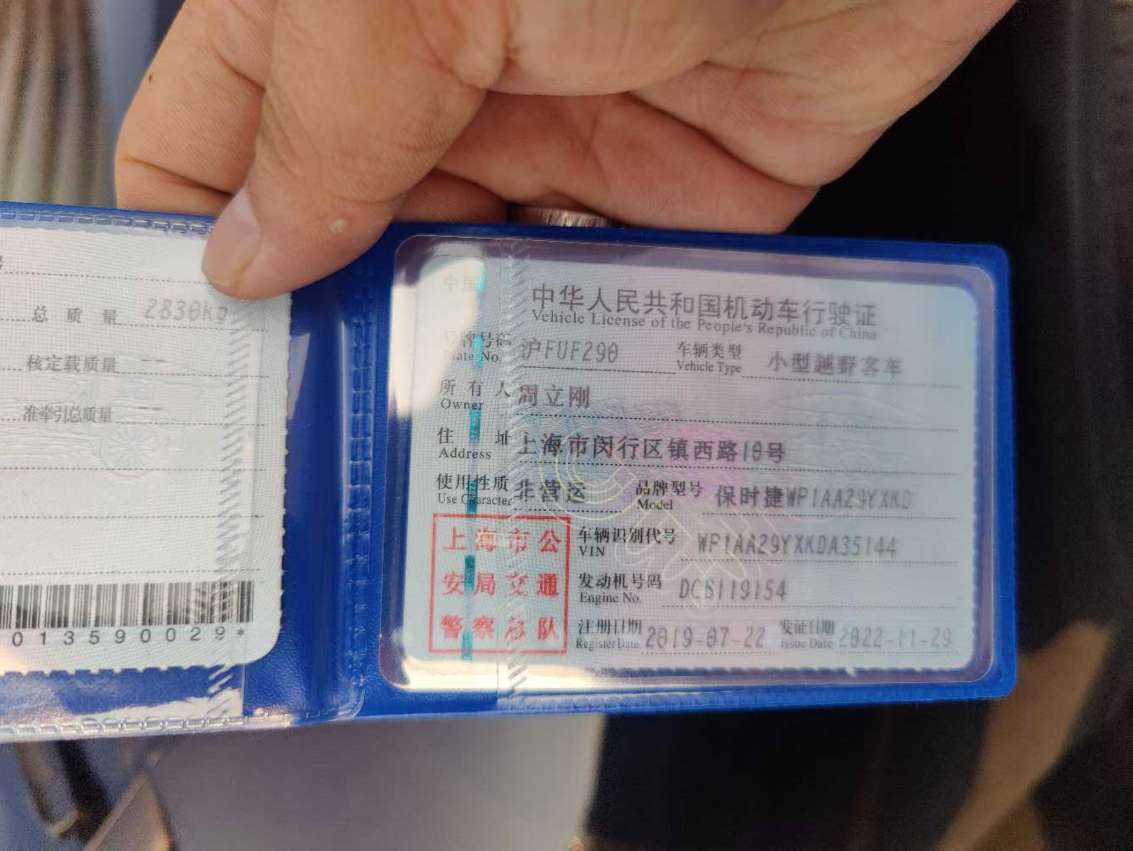 总质量 2830kg
核定载质量 --
准牵引总质量 --
013590029*
中国
中华人民共和国机动车行驶证
Vehicle License of the People's Republic of China
号牌号码 沪FUF290 车辆类型 小型越野客车
Plate No. Vehicle Type
所有人 周立刚
Owner
住址 上海市闵行区镇西路10号
Address
使用性质 非营运 品牌型号 保时捷WP1AA29YXKD
Use Character Model
上海市公
安局交通
警察总队
车辆识别代号 WP1AA29YXKDA35144
VIN
发动机号码 DCB119154
Engine No.
注册日期 2019-07-22 发证日期 2022-11-29
Register Date Issue Date